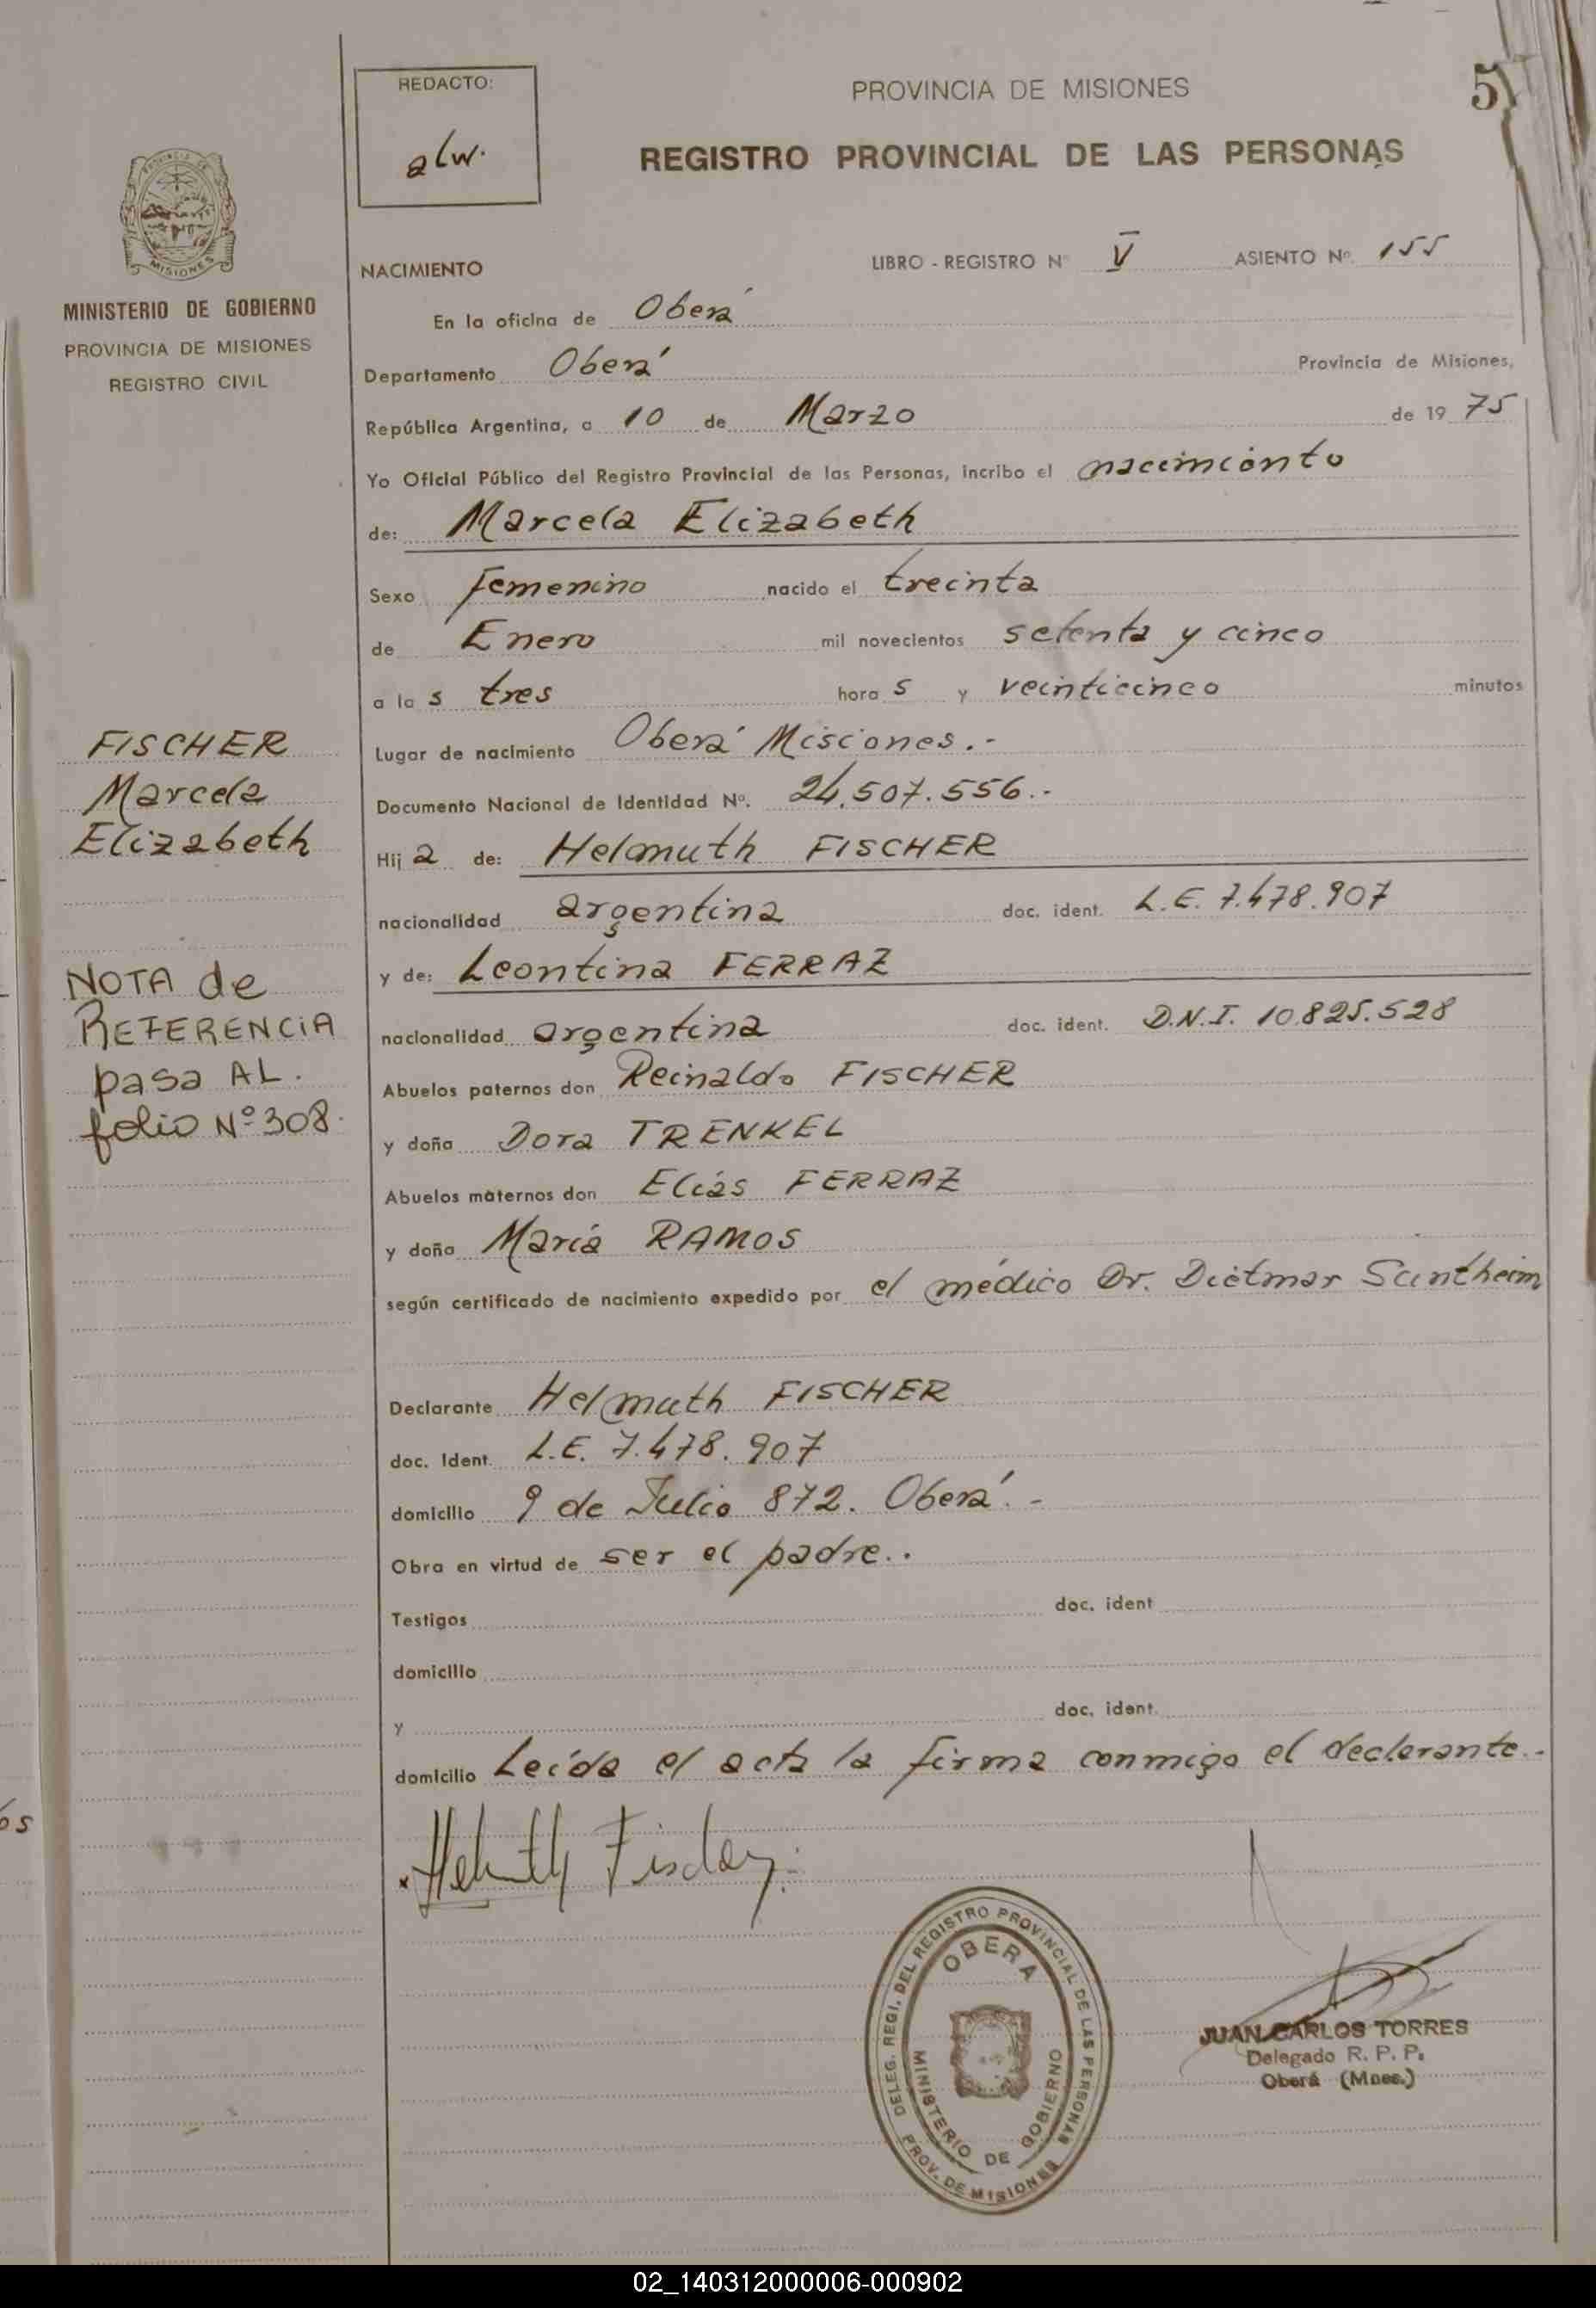 REDACTO:
alw.
PROVINCIA DE MISIONES
5
REGISTRO PROVINCIAL DE LAS PERSONAS
MISIONES
MINISTERIO DE GOBIERNO
PROVINCIA DE MISIONES
REGISTRO CIVIL
NACIMIENTO LIBRO - REGISTRO Nº V ASIENTO Nº 155
En la oficina de Oberá
Departamento Oberá Provincia de Misiones,
República Argentina, a 10 de Marzo de 19 75
Yo Oficial Público del Registro Provincial de las Personas, incribo el nacimiento
de: Marcela Elizabeth
Sexo femenino nacido el treinta
de Enero mil novecientos setenta y cinco
a la s tres hora s y veinticinco minutos
Lugar de nacimiento Oberá Misiones.-
Documento Nacional de Identidad Nº. 24.507.556.-
Hij a de: Helmuth FISCHER
nacionalidad argentina doc. ident. L.E. 7.478.907
y de: Leontina FERRAZ
nacionalidad argentina doc. ident. D.N.I. 10.825.528
Abuelos paternos don Reinaldo FISCHER
y doña Dora TRENKEL
Abuelos maternos don Elías FERRAZ
y doña María RAMOS
según certificado de nacimiento expedido por el médico Dr. Dietmar Suntheim
Declarante Helmuth FISCHER
doc. Ident. L.E. 7.478.907
domicilio 9 de Julio 872. Oberá.-
Obra en virtud de ser el padre..
Testigos doc. ident
domicilio
y doc. ident.
domicilio Leída el acta la firma conmigo el declarante.-
FISCHER
Marcela
Elizabeth
NOTA de
REFERENCIA
pasa AL.
folio Nº 308.
os
Helmuth Fischer
DELEG. REGI. DEL REGISTRO PROVINCIAL DE LAS PERSONAS
OBERA
MINISTERIO DE GOBIERNO
PROV. DE MISIONES
JUAN CARLOS TORRES
Delegado R. P. P.
Oberá (Mnes.)
02_140312000006-000902